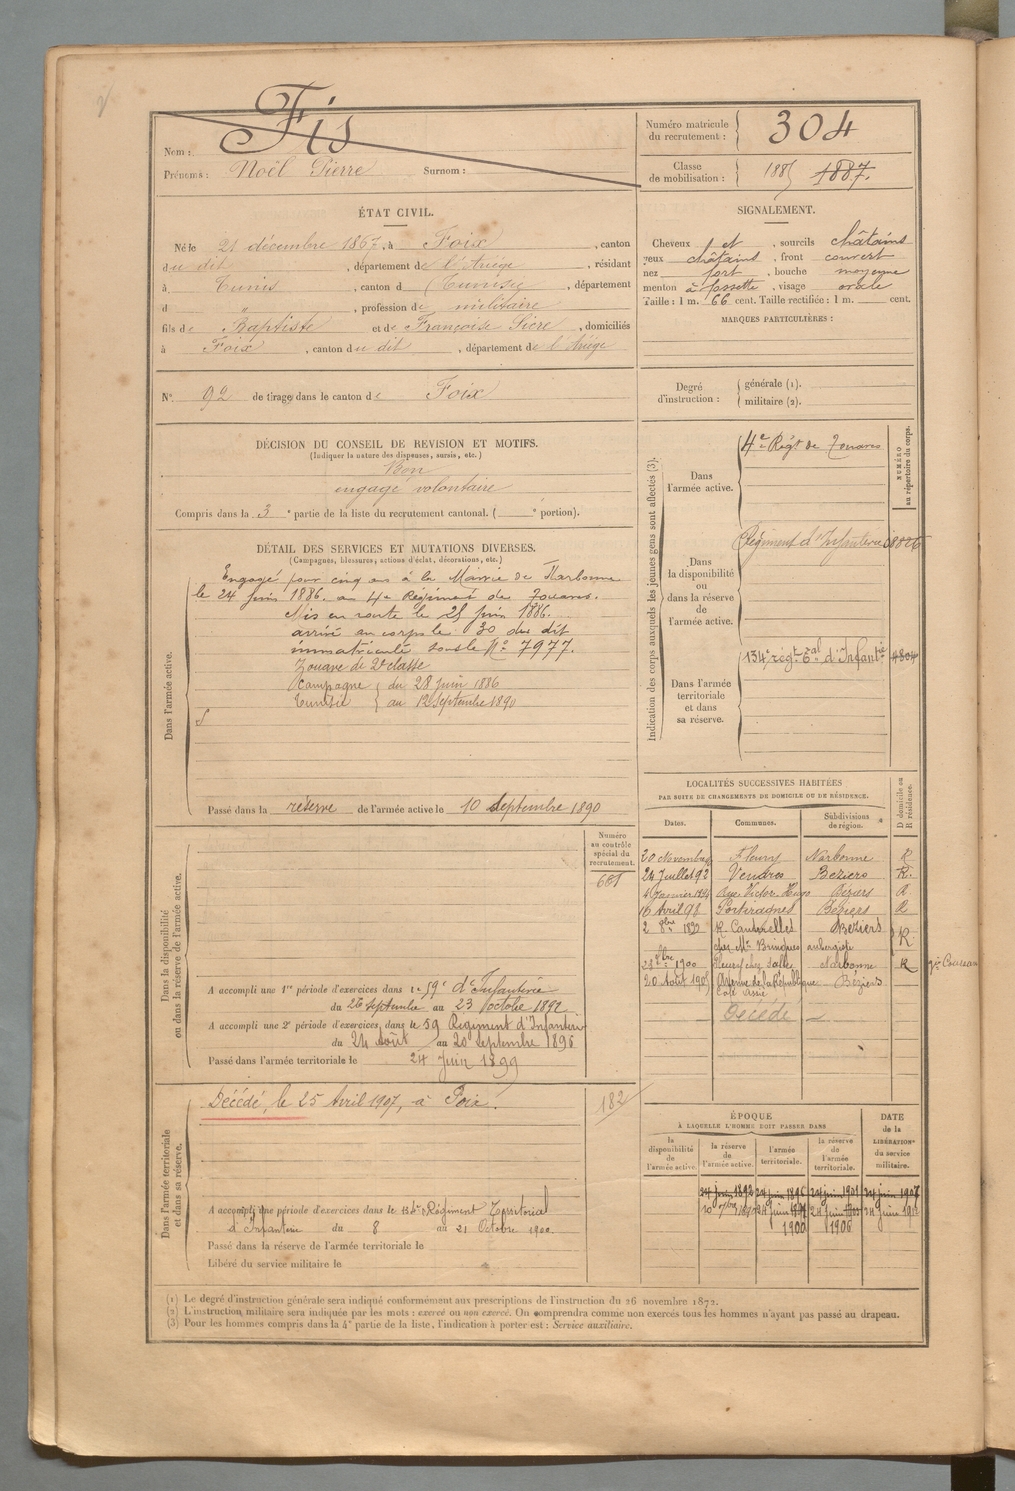 Fis
Nom :
Prénoms : Noël Pierre Surnom :
Numéro matricule du recrutement : 304
Classe de mobilisation : 1885 1887.
ÉTAT CIVIL.
Né le 21 décembre 1867, à Foix, canton
du dit, département de l'Ariège, résidant
à Tunis, canton d Tunisie, département
d " , profession de militaire
fils de Baptiste et de Françoise Sicre, domiciliés
à Foix, canton du dit, département de l'Ariège
SIGNALEMENT.
Cheveux et , sourcils châtains
yeux châtains, front couvert
nez fort, bouche moyenne
menton à fossette, visage ovale
Taille : 1 m. 66 cent. Taille rectifiée : 1 m. cent.
MARQUES PARTICULIÈRES :
N° 92 de tirage dans le canton de Foix
Degré d'instruction : générale (1). militaire (2).
DÉCISION DU CONSEIL DE REVISION ET MOTIFS.
(Indiquer la nature des dispenses, sursis, etc.)
Bon
engagé volontaire
Compris dans la 3e partie de la liste du recrutement cantonal. ( e portion).
DÉTAIL DES SERVICES ET MUTATIONS DIVERSES.
(Campagnes, blessures, actions d'éclat, décorations, etc.)
Dans l'armée active.
Engagé pour cinq ans à la Mairie de Narbonne
le 24 juin 1886. au 4e Régiment de Zouaves.
Mis en route le 25 juin 1886.
arrivé au corps le 30 du dit
immatriculé sous le No 7977.
Zouave de 2e classe
Campagne du 28 juin 1886
Tunisie au 12 Septembre 1890
Passé dans la réserve de l'armée active le 10 septembre 1890
Indication des corps auxquels les jeunes gens sont affectés (3).
NUMÉRO au répertoire du corps.
Dans l'armée active.
4e Régt de Zouaves
Dans la disponibilité ou dans la réserve de l'armée active.
Régiment d'Infanterie
Dans l'armée territoriale et dans sa réserve.
134e régt t al d'Infantie 4804
LOCALITÉS SUCCESSIVES HABITÉES
PAR SUITE DE CHANGEMENTS DE DOMICILE OU DE RÉSIDENCE.
Dates. Communes. Subdivisions de région. D domicile ou R résidence.
20 Novembre Fleury Narbonne R
24 Juillet 92 Vendres Béziers R.
4 Janvier 1894 Rue Victor Hugo Béziers R
16 Avril 98 Portiragnes Béziers R
2 8bre R. Canterelles Béziers R
chez Mr Bringues aubergiste
1900 Fleury chez Salles Narbonne R
20 Août 1905 Avenue de la République Béziers
Décédé
Dans la disponibilité ou dans la réserve de l'armée active.
Numéro au contrôle spécial du recrutement.
A accompli une 1re période d'exercices dans le 59e d'Infanterie
du 26 septembre au 23 octobre 1892
A accompli une 2e période d'exercices dans le 59 Régiment d'Infanterie
du 24 Août au 20 Septembre 1896
Passé dans l'armée territoriale le 24 Juin 1899
Dans l'armée territoriale et dans sa réserve.
Décédé, le 25 Avril 1907, à Foix.
182
A accompli une période d'exercices dans le 134e Régiment Territorial
d'Infanterie du 8 au 21 Octobre 1900.
Passé dans la réserve de l'armée territoriale le
Libéré du service militaire le
ÉPOQUE
À LAQUELLE L'HOMME DOIT PASSER DANS
DATE de la LIBÉRATION du service militaire.
la disponibilité de l'armée active. la réserve de l'armée active. l'armée territoriale. la réserve de l'armée territoriale.
24 juin 1892 24 juin 1896 24 juin 1901 24 juin 1907
10 7bre 1890 24 juin 24 juin 24 juin
1900 1906
(1) Le degré d'instruction générale sera indiqué conformément aux prescriptions de l'instruction du 26 novembre 1872.
(2) L'instruction militaire sera indiquée par les mots : exercé ou non exercé. On comprendra comme non exercés tous les hommes n'ayant pas passé au drapeau.
(3) Pour les hommes compris dans la 4e partie de la liste, l'indication à porter est : Service auxiliaire.